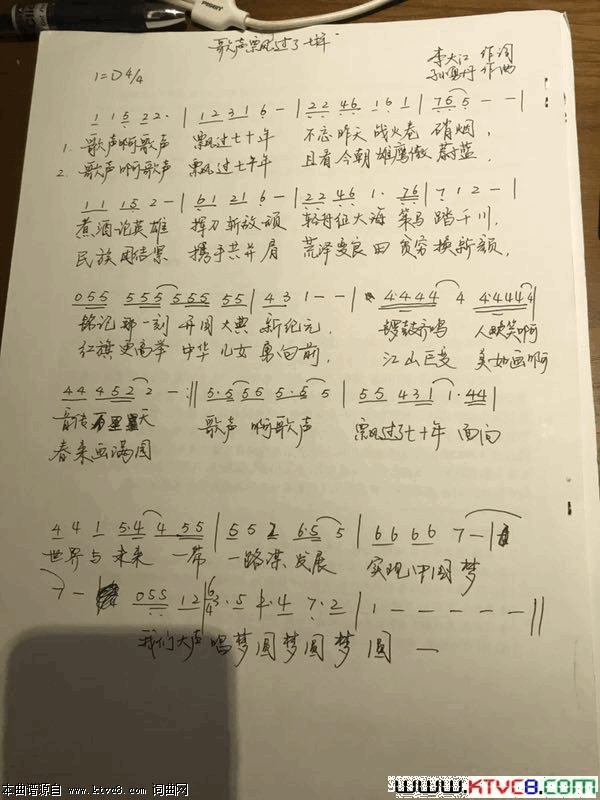 歌声飘过了七十年
1=D 4/4
李大江 作词
作曲
1 1 5 2 2· | 1 2 3 1 6 - | 2 2 4 6 1 6 1 | 7 6 5 - - |
1. 歌声啊歌声 飘过七十年 不忘昨天 战火卷 硝烟,
2. 歌声啊歌声 飘过七十年 且看今朝 雄鹰傲 蔚蓝,
1 1 1 5 2 - | 6 1 2 1 6 - | 2 2 4 6 1· 7 6 | 7 1 2 - |
煮酒论英雄 挥刀斩敌顽 征大海 策马 踏千川,
民族同信 携手共并肩 荒泽变良田 贫穷换新颜,
0 5 5 5 5 5 5 5 5 5 5 | 4 3 1 - - | 4·4 4 4 4 4·4 4 4 4 |
铭记那一刻 开国大典 新纪元, 锣鼓齐鸣 人欢笑啊
红旗更高举 中华儿女 勇向前, 江山巨变 美如画啊
4 4 4 5 2 2 - :|| 5·5 5 5 5·5 5 | 5 5 4 3 1 1·4 4 |
音传 天 歌声 啊歌声 飘过了七十年 面向
春来画满园
4 4 1 5·4 4 5 5 | 5 5 2 6·5 5 | 6 6 6 6 7 - |
世界与未来 一带 一路谋发展 实现中国梦
7 - | 0 5 5 1 2 | 6/4 3·5 2·4 7·2 | 1 - - - - - ||
我们大声 唱梦圆梦圆梦 圆 —
本曲谱源自 www.ktvc8.com 词曲网
www.KTVC8.com